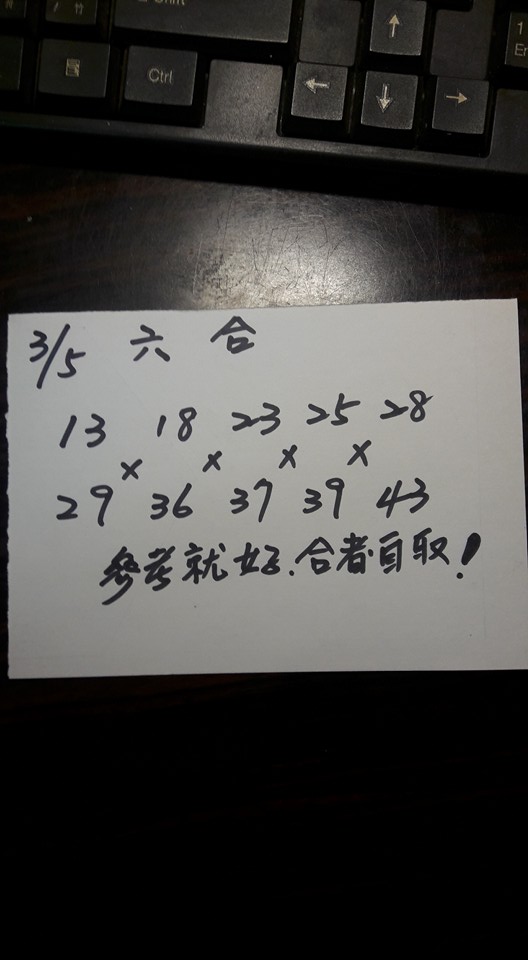 Shift
Ctrl
↑
1
←
↓
→
3/5 六合
13 18 23 25 28
× × × ×
29 36 37 39 43
參考就好.合者自取!